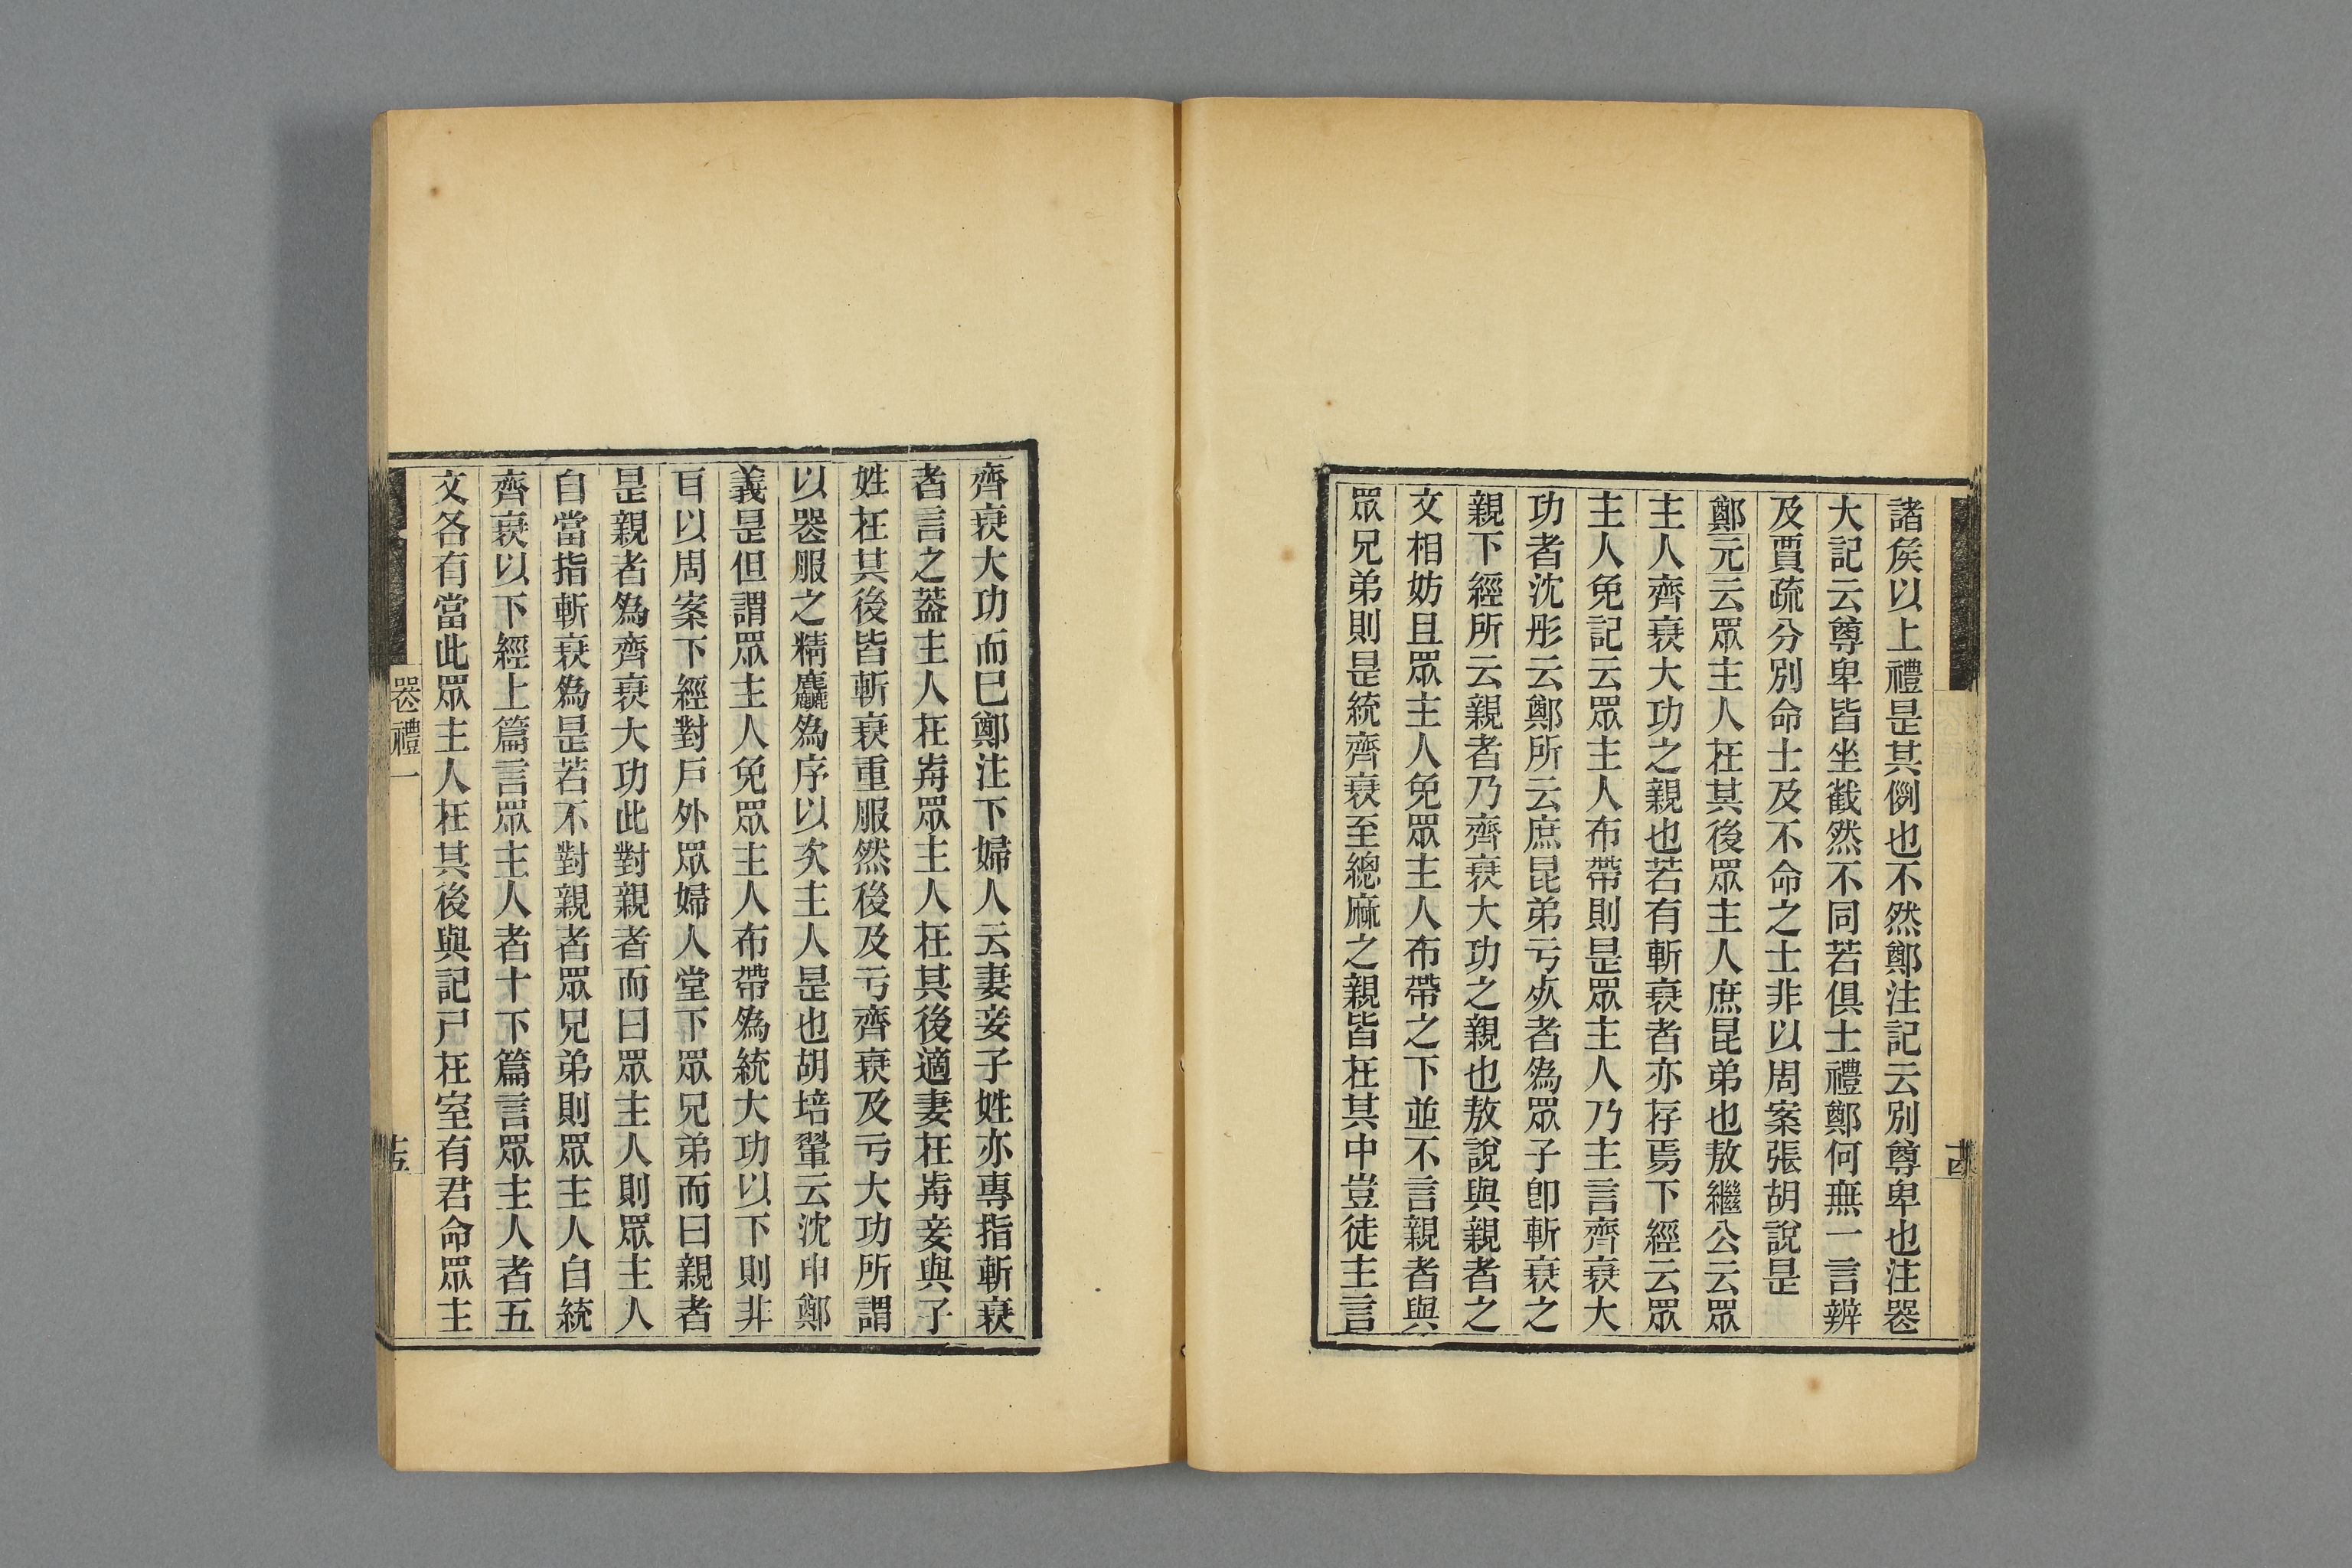 諸矦以上禮昰其例也不然鄭注記云別尊卑也注䘮
大記云尊卑皆坐截然不同若俱士禮鄭何無一言辨
及賈疏分別命士及不命之士非以周案張胡說是
鄭元云眾主人在其後眾主人庶昆弟也敖繼公云眾
主人齊衰大功之親也若有斬衰者亦存焉下經云眾
主人免記云眾主人布帶則昰眾主人乃主言齊衰大
功者沈彤云鄭所云庶昆弟亏歿者為眾子卽斬衰之
親下經所云親者乃齊衰大功之親也敖說與親者之
文相妨且眾主人免眾主人布帶之下並不言親者與
眾兄弟則是統齊衰至緦麻之親皆在其中豈徒主言
齊衰大功而已鄭注下婦人云妻妾子姓亦專指斬衰
者言之葢主人在歬眾主人在其後適妻在歬妾與子
姓在其後皆斬衰重服然後及亏齊衰及亏大功所謂
以䘮服之精麤為序以次主人昰也胡培翬云沈申鄭
義昰但謂眾主人免眾主人布帶為統大功以下則非
𦣻以周案下經對戶外眾婦人堂下眾兄弟而曰親者
昰親者為齊衰大功此對親者而曰眾主人則眾主人
自當指斬衰為昰若不對親者眾兄弟則眾主人自統
齊衰以下經上篇言眾主人者十下篇言眾主人者五
文各有當此眾主人在其後與記尸在室有君命眾主
䘮禮一
十五